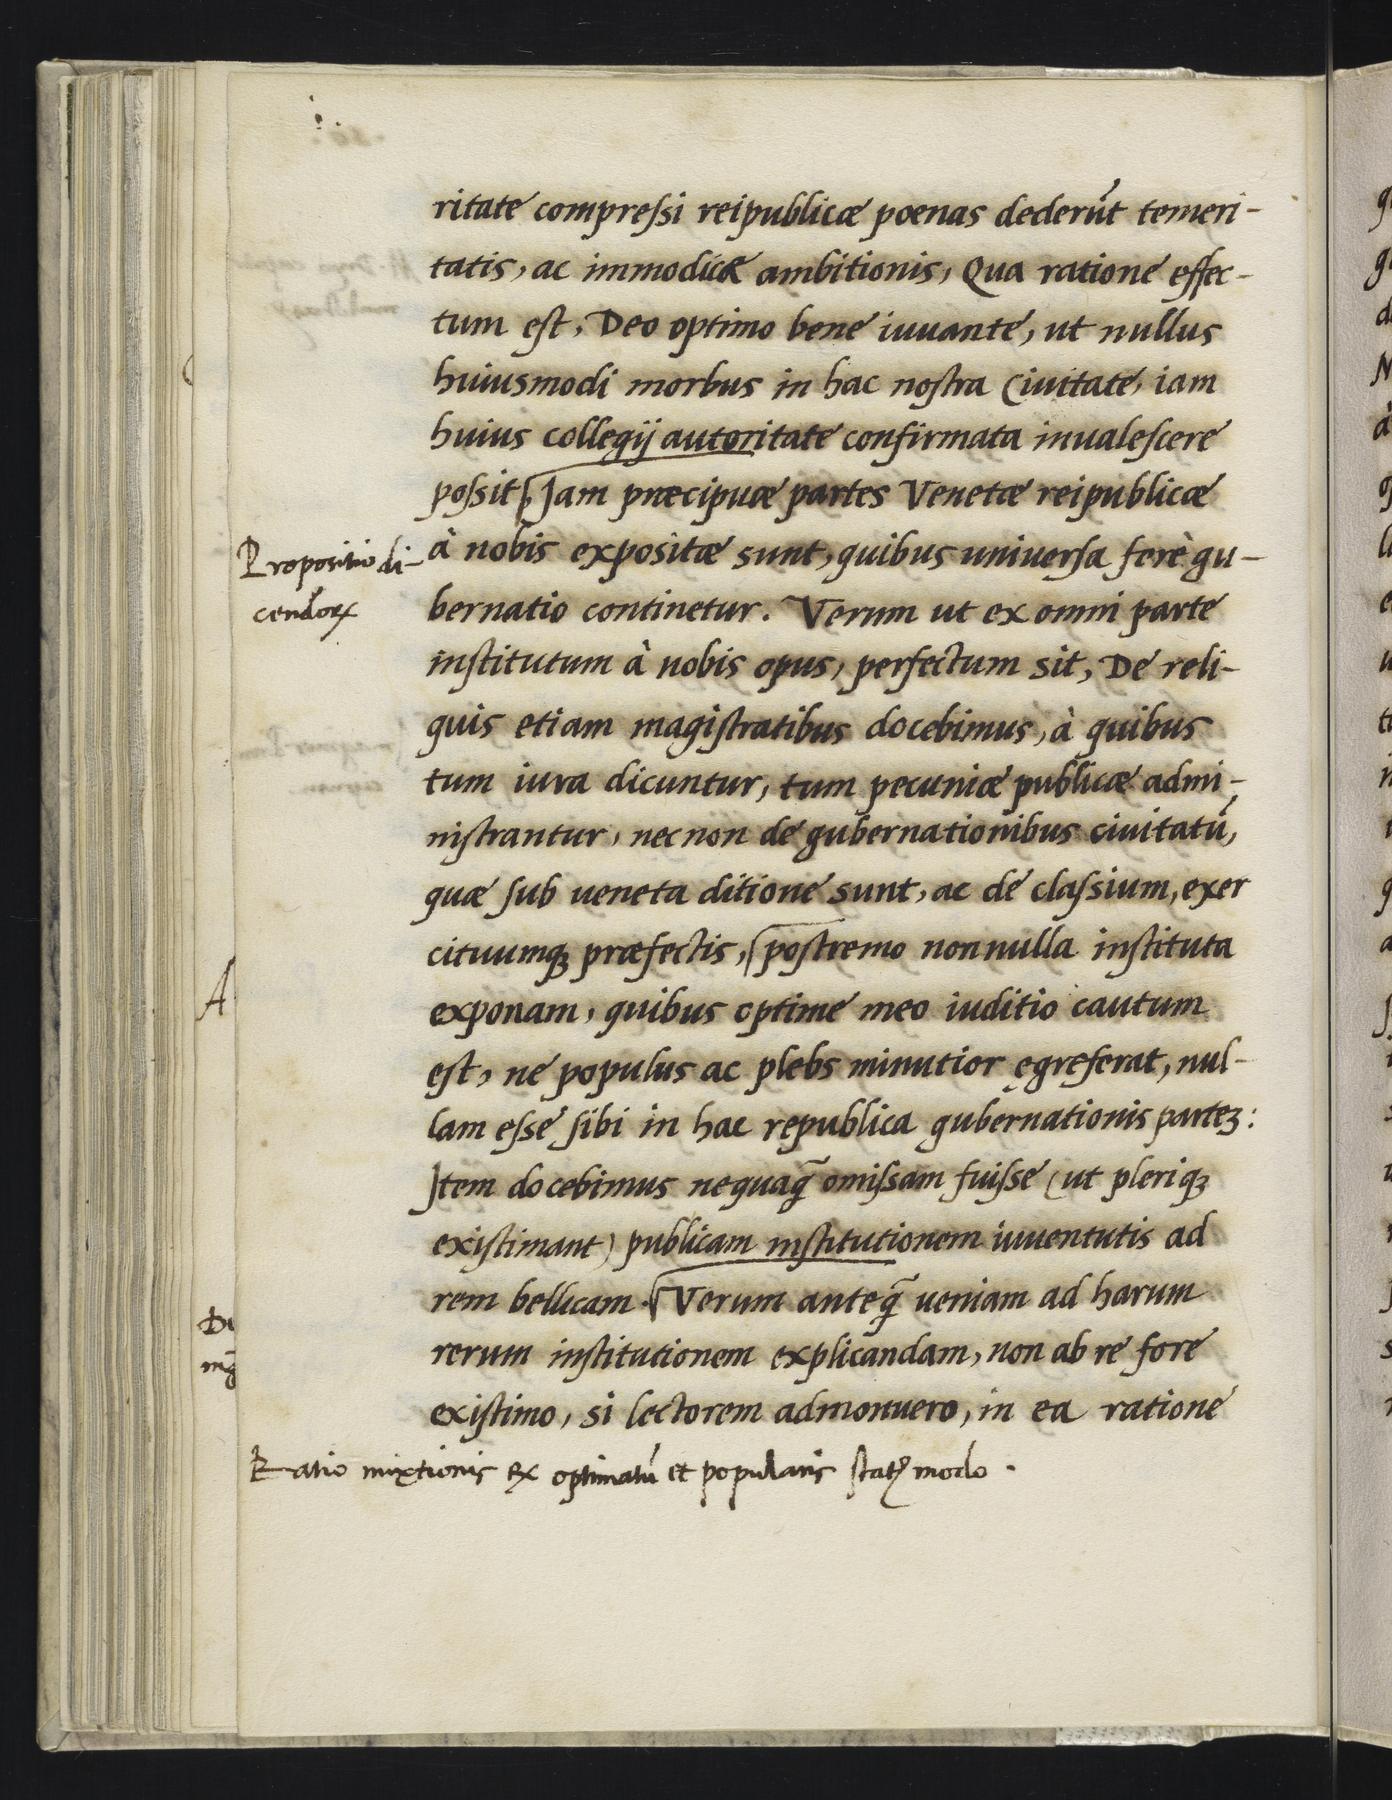 ritate compreſsi reipublicæ poenas dederūt temeri-
tatis, ac immodicæ ambitionis, Qua ratione effec-
tum eſt, Deo optimo bene iuuante, ut nullus
huiusmodi morbus in hac noſtra Ciuitate, iam
huius collegij autoritate confirmata inualeſcere
poſsit. Iam præcipuæ partes Venetæ reipublicæ
Propositio di-
cendorꝝ
à nobis expositæ sunt, quibus uniuerſa ferè gu-
bernatio continetur. Verum ut ex omni parte
inſtitutum à nobis opus, perfectum sit, De reli-
quis etiam magiſtratibus docebimus, à quibus
tum iura dicuntur, tum pecuniæ publicæ admi-
niſtrantur, necnon de gubernationibus ciuitatū,
quæ ſub ueneta ditione sunt, ac de claſsium, exer
cituumqꝫ præfectis, poſtremo nonnulla inſtituta
exponam, quibus optime meo iuditio cautum
eſt, ne populus ac plebs minutior ęgreferat, nul-
lam eſse ſibi in hac republica gubernationis parteꝫ:
Item docebimus nequaq̃ omiſsam fuiſse (ut pleriqꝫ
exiſtimant) publicam inſtitutionem iuuentutis ad
rem bellicam. Verum anteq̃ ueniam ad harum
rerum inſtitutionem explicandam, non ab re fore
exiſtimo, si lectorem admonuero, in ea ratione
Ratio mixtionis ex optimatū et popularis ſtatꝰ modo.
A